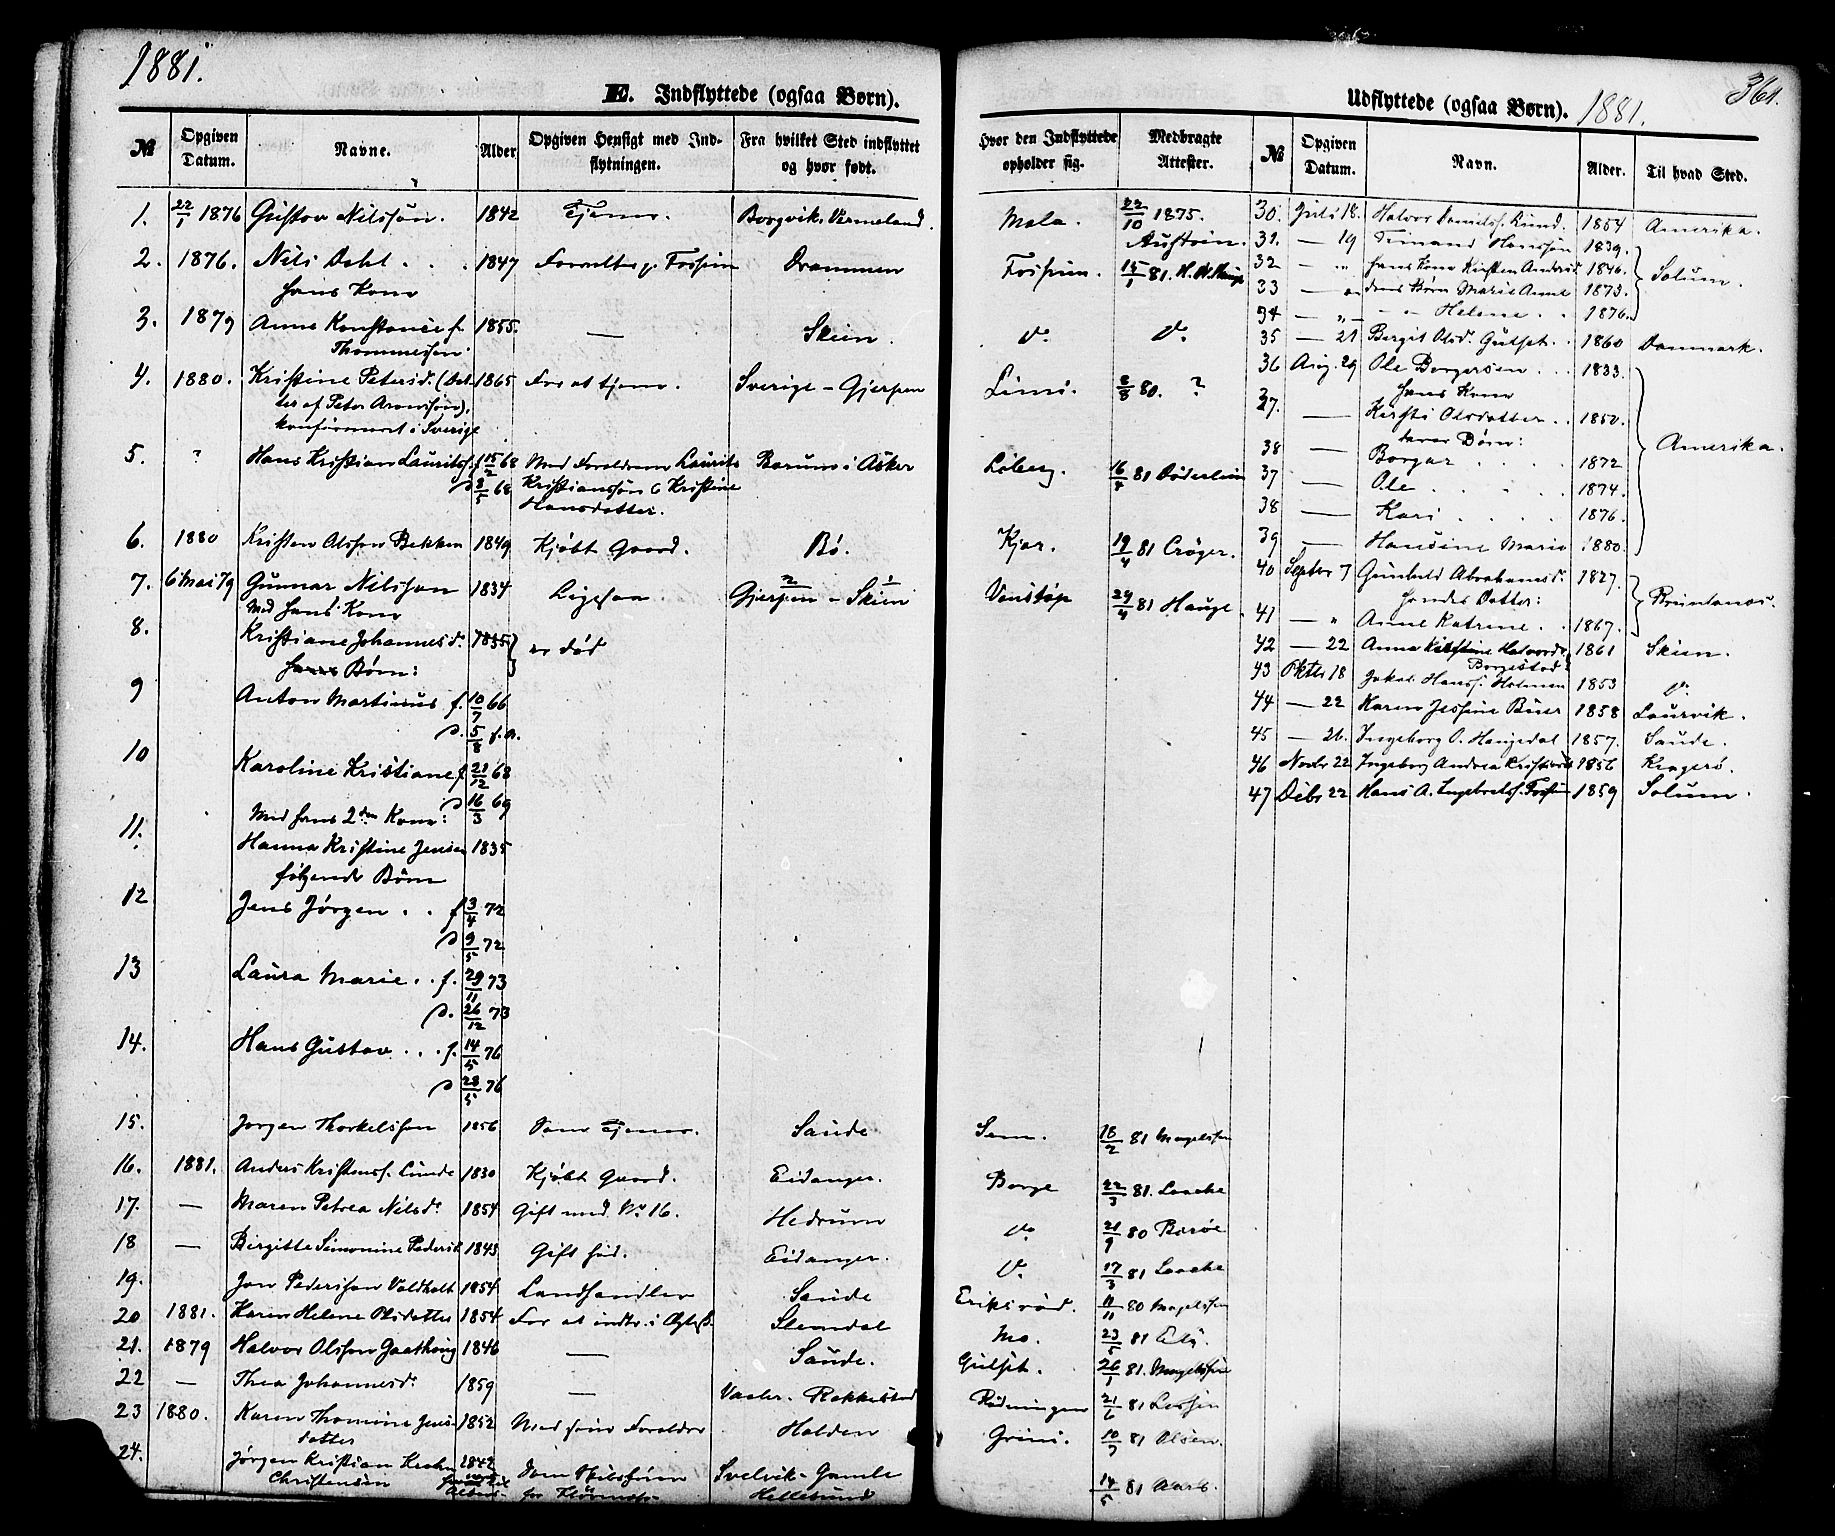 1881.
E. Indflyttede (ogsaa Børn).
№ Opgiven Datum. Navne. Alder Opgiven Hensigt med Indflytningen. Fra hvilket Sted indflyttet og hvor født.
1. 22/1 1876 Gustov Nilsson. 1842 Tjener. Borgvik, Vermeland.
2. 1876. Nils Dahl . . . 1847 Drammen
hans Kone
3. 1879 Anne Konstance f. 1855. — Skien.
Thommesen
4. 1880. Kristine Petersd. (Dat- 1865 For at tjene. Sverige – Gjerpen
ter af Peter Aronsøn),
konfirmeret i Sverige
5. " Hans Kristian Lauritss. f 15/2 68 Med Forældrene Laurits Barum i Asker
d 3/5 68 Kristianssøn & Kristine
Hansdatter.
6. 1880 Kristen Olsson Bekken 1849 Kjøbt Gaard. Bø.
7. 6 Mai 79 Gunnar Nilsson 1834 Ligesaa. Gjerpen – Skien
Med hans Kone
8. Kristiane Johannesd. 1835 er død
hans Børn:
9 Anton Martinus f. 10/7 66
d. 5/8 s. A.
10 Karoline Kristiane f 21/12 68
d 16/3 69
Med hans 2den Kone:
11. Hanna Kristine Jensen 1835
følgende Børn
12 Jens Jørgen . . f 3/4 72
d 9/5 72
13 Laura Marie . . f. 29/11 73
d. 26/12 73
14. Hans Gustav . . . f. 14/5 76
d 28/5 76
15. Jørgen Thorkelsson 1856 Som Tjener. Saude
16. 1881. Anders Kristenss. Lunde 1830 Kjøbt Gaard. Eidanger.
17. — Maren Petrea Nilsd. 1854 Gift med No 16. Hedrum
18 — Birgitte Simonine Pedersd. 1843 Gift hid. Eidanger.
19. Jon Pedersson Valdholt 1854 Landhandler Saude
20 1881. Karen Helene Olsdatter 1854 For at indtr. i Slemdal
21. 1879 Halvor Olsson 1846 — Saude.
22 — Thea Johannesd. 1859 — Vaaler. Rakkestad
23 1880. Karen Thomine Jens- 1852 Med sine Forældre Halden
datter
24. Jørgen Kristian 1842 Svelvik – Gamle
Christensen Hellesund
Udflyttede (ogsaa Børn). 1881. 361.
Hvor den Indflyttede opholder sig. Medbragte Attester. № Opgiven Datum. Navn. Alder. Til hvad Sted.
Mæla. 22/10 1875.
Fossum. 15/1 81.
do. do.
Limi. 8/8 80. ?
Løberg. 16/8 81 Döderlein
Kjær. 19/4 81 Crøger.
Venstøp 29/4 81 Hauge
Sem. 18/2 81 Magelssen
Borge 22/3 81. Laache
do. 21/9 80 Barøe
do. 17/3 81 Laache
Eriksrød. 11/11 80 Magelssen
Mo. 23/5 81
Gulset. 26/1 81. Magelssen
21/6 81
Grini. 10/7 81 Olsen.
14/5 81 Aars.
30. Juli 18. Halvor Danielss. Lund. 1854 Amerika.
31. — 19 Hanssøn 1839.
32 — " hans Kone Kirsten Andersd. 1846. Solum.
33 — " deres Børn Marie Anne 1873.
34 — " — — Helene . . 1876.
35 — 21 Bergit Olsd. Gulset. . 1860 Danmark.
36 Aug. 29 Ole Borgersen . . . 1833.
hans Kone
37. — Kirsti Olsdatter . . 1850.
deres Børn:
38 — Borgar . . . . 1872 Amerika.
37 — Ole . . . . 1874.
38 — Kari . . . . 1876.
39 — Hansine Marie 1880.
40 Septbr 7 Gunhild Abrahamsd. 1827.
hendes Datter:
41 — " Anne Katrine . . 1867.
42 — 22 Anne Kirstine Halvorsd. 1861 Skien.
Borgestad
43 Oktbr 18 Jakob Hanss. Holmen 1853 do.
44 — 22 Karen Jessine Buer 1858 Laurvik.
45 — 26. Ingeborg O. Haugedal 1857. Saude.
46 Novbr 22 Ingeborg Andrea Kristensd. 1856 Kragerø.
47 Debr 22 Hans A. Ingebretss. Fossum 1859 Solum.